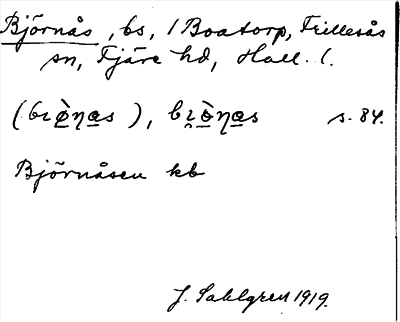 Björnås, bs, / Boatorp, Frillesås
sn, Fjäre hd, Hall. l.
(bıø̀ŋas), bı̯ò̱ŋas s. 84.
Björnåsen kb
J. Sahlgren 1919.